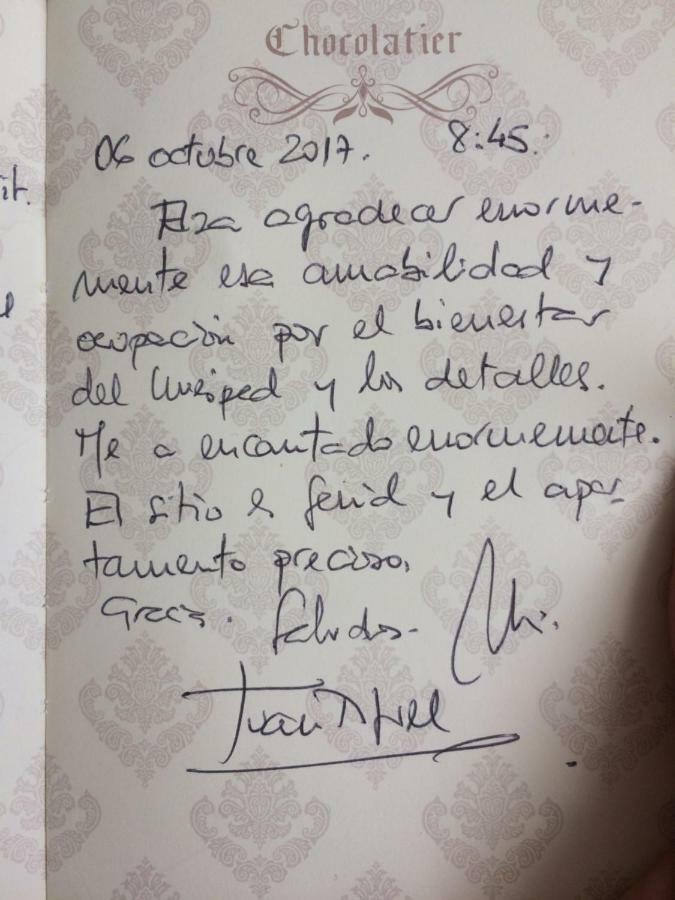 Chocolatier
06 octubre 2017. 8:45.
agradecer enorme-
mente esa amabilidad y
ocupación por el bienestar
del huésped y los detalles.
Me a encantado enormemente.
El sitio es genial y el apar-
tamento precioso.
Gracias. Saludos.
Juan